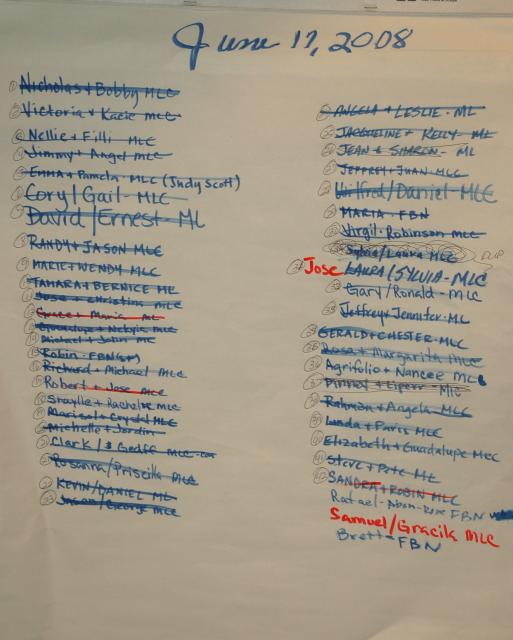 June 17, 2008
Nicholas + Bobby MLC
Victoria + Kacie MLC
Nellie + Filli MLC
Jimmy + Angel MLC
Emma + Pamela MLC (Judy Scott)
Cory/Gail - MLC
David/Ernest - ML
RANDY + JASON MLC
MARIE + WENDY MLC
TAMARA + BERNICE ML
Jose + Christina MLC
Grace + Maria ML
Guadalupe + MLC
Michael + John MC
Robin - FBN
Richard + Michael MLC
Robert + Jose MLC
Straylle + MLC
Marisol + Crystal MLC
Michelle + Jardin
Clark/ Geoff MLC
Rosanna/Priscilla MLC
KEVIN/DANIEL ML
Jason/George MLC
ANGELA + LESLIE - ML
JACQUELINE + KELLY ML
JEAN & SHARON - ML
JEFFREY + JUAN MLC
Wilfred/Daniel MLC
MARIA FBN
Virgil Robinson MLC
Sylvia/Laura MLC DUP
Jose LAURA/SYLVIA - MLC
Gary/Ronald - MLC
Jeffrey + Jennifer - ML
GERALD + CHESTER MLC
Rosa + Margarith MLC
Agrifolio + Nancee MLC
MLC
Rahman + Angela MLC
Linda + Paris MLC
Elizabeth + Guadalupe MLC
Steve + Pete ML
SANDRA + ROBIN MLC
Rafael - FBN
Samuel/Gracik MLC
Brett - FBN